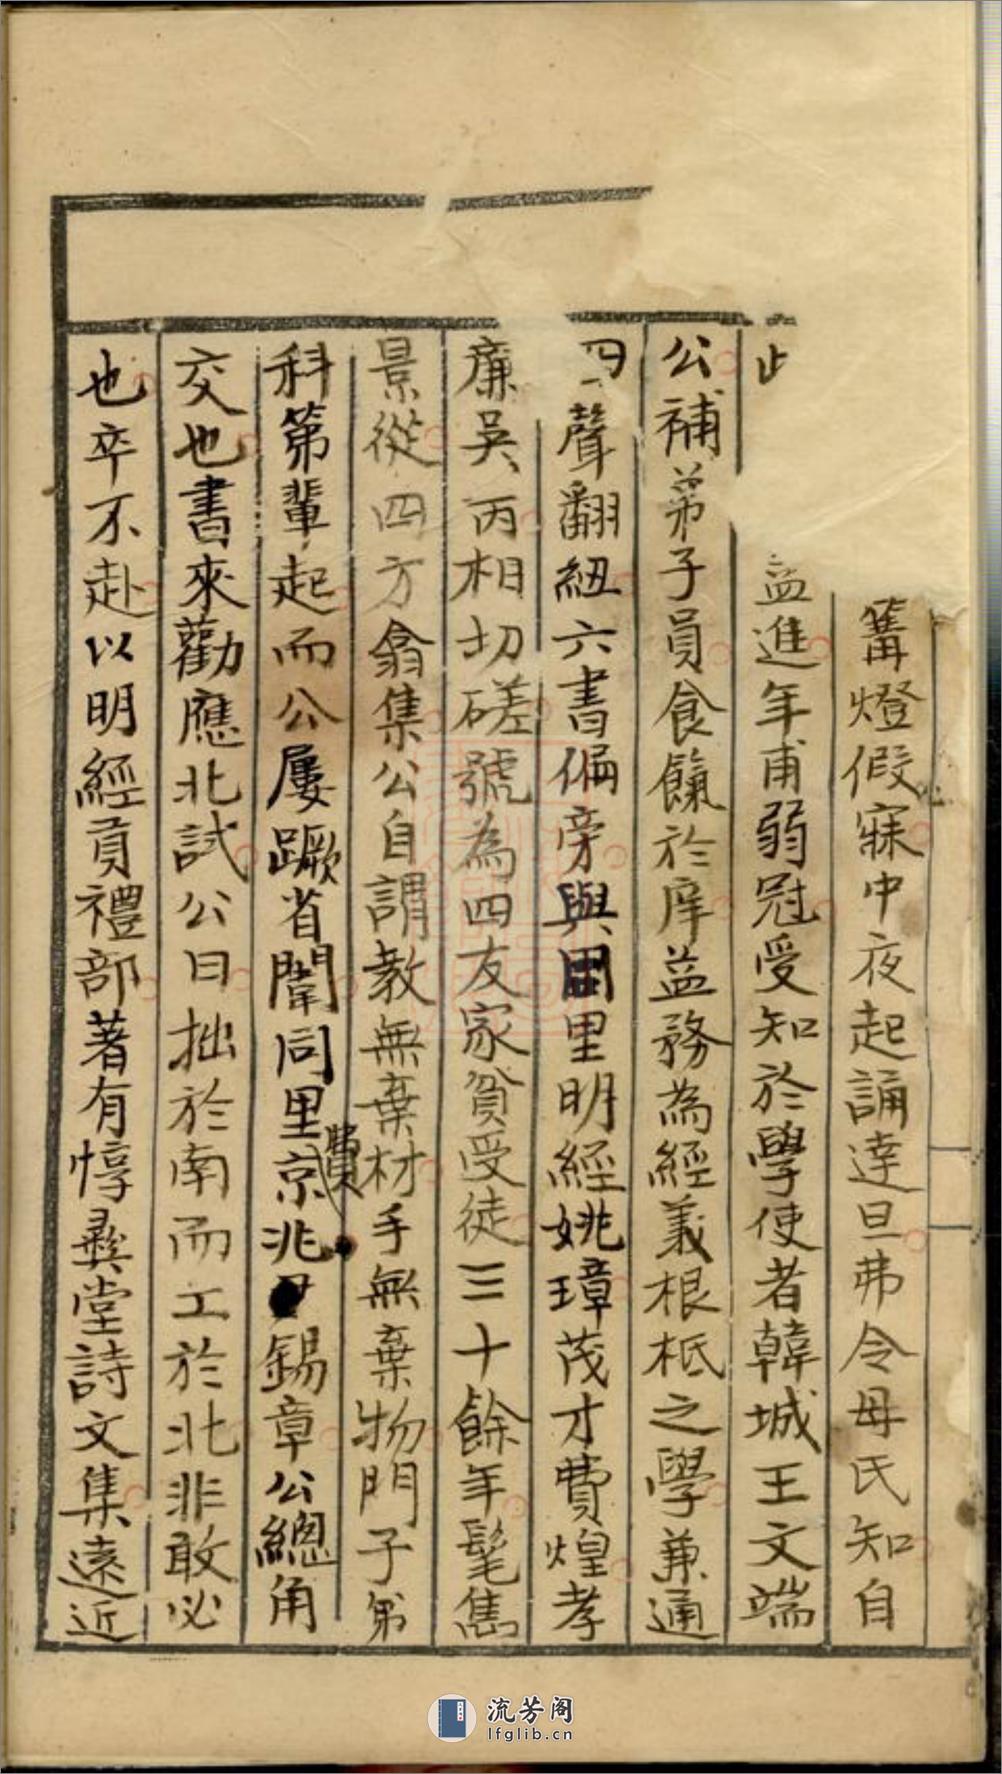 篝燈假寐中夜起誦達旦弗令母氏知自
益進年甫弱冠受知於學使者韓城王文端
公補弟子員食餼於庠益務為經義根柢之學兼通
四聲翻紐六書偏旁與同里明經姚瑋茂才費煌孝
廉吳丙相切磋號為四友家貧受徒三十餘年髦雋
景從四方翕集公自謂教無棄材手無棄物門子弟
科第輩起而公屢蹶省闈同里京兆費錫章公總角
交也書來勸應北試公曰拙於南而工於北非敢必
也卒不赴以明經貢禮部著有惇彝堂詩文集遠近
流芳阁
lfglib.cn